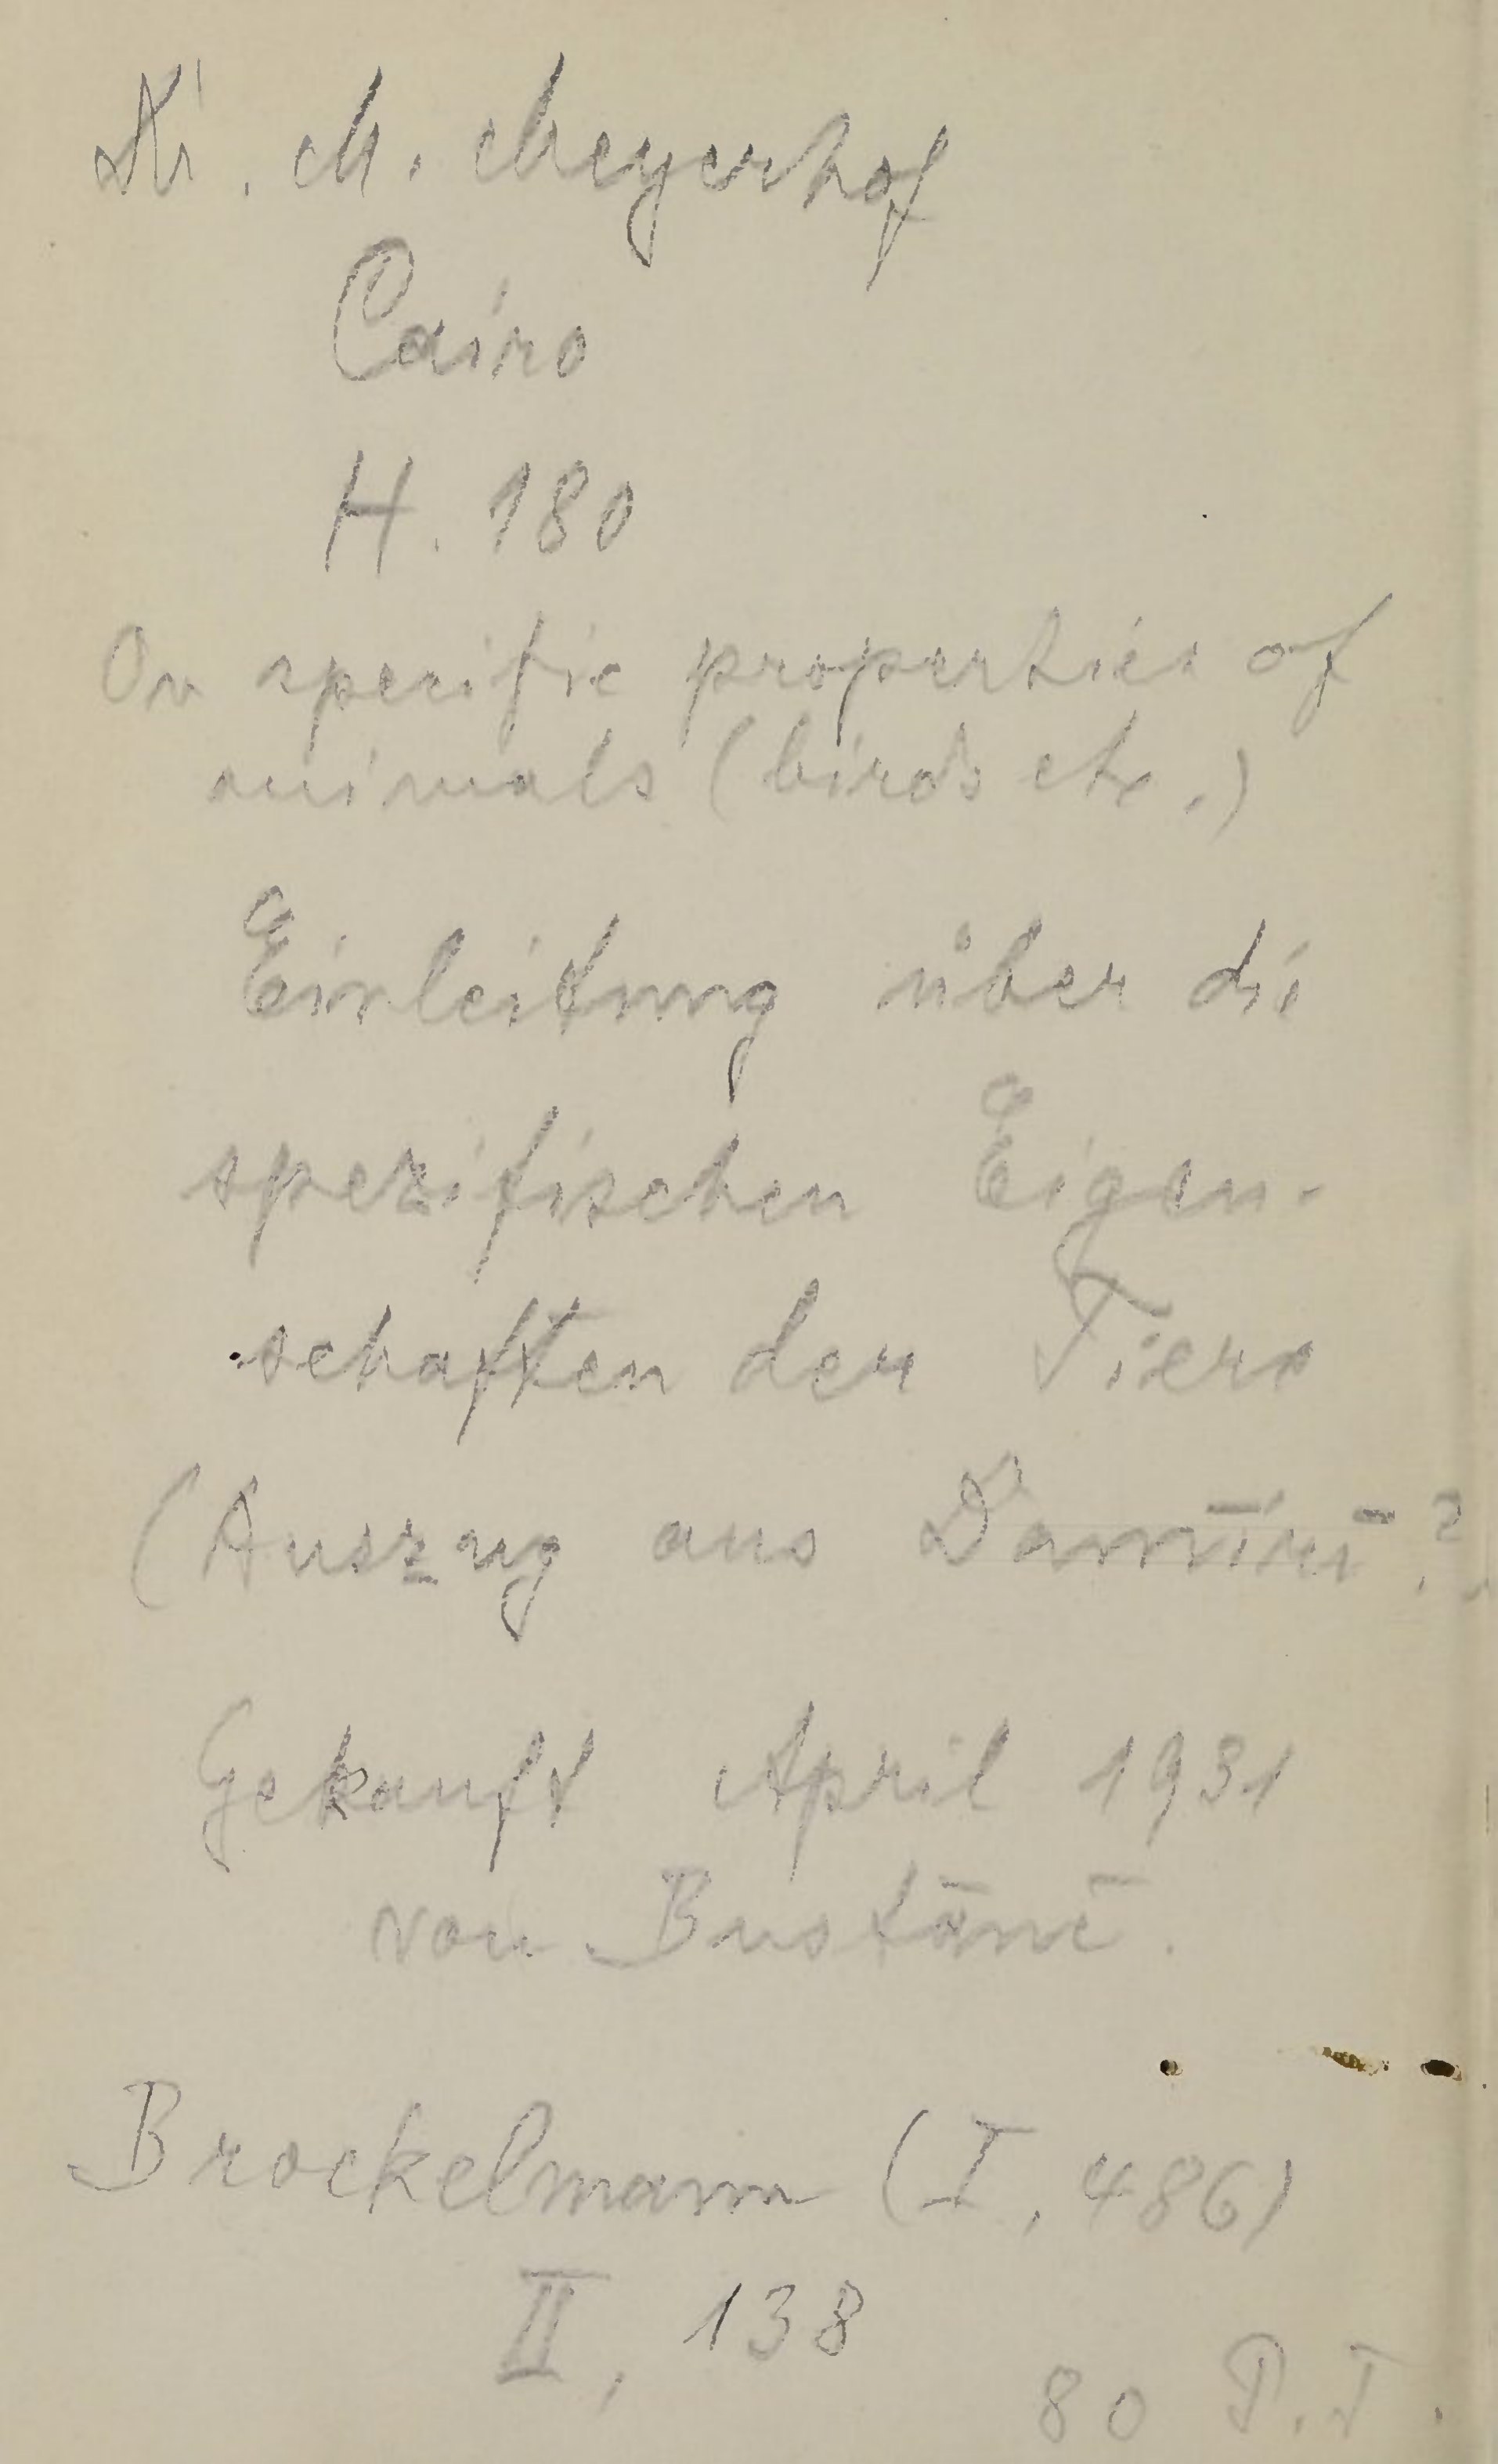 Dr. M. Meyerhof
Cairo
H. 180
On specific properties of
animals (birds etc.)
Einleitung über die
spezifischen Eigen-
schaften der Tiere
(Auszug aus Damīrī?)
Gekauft April 1931
von Bustānī.
Brockelmann (I, 486)
II, 138
80 P.T.